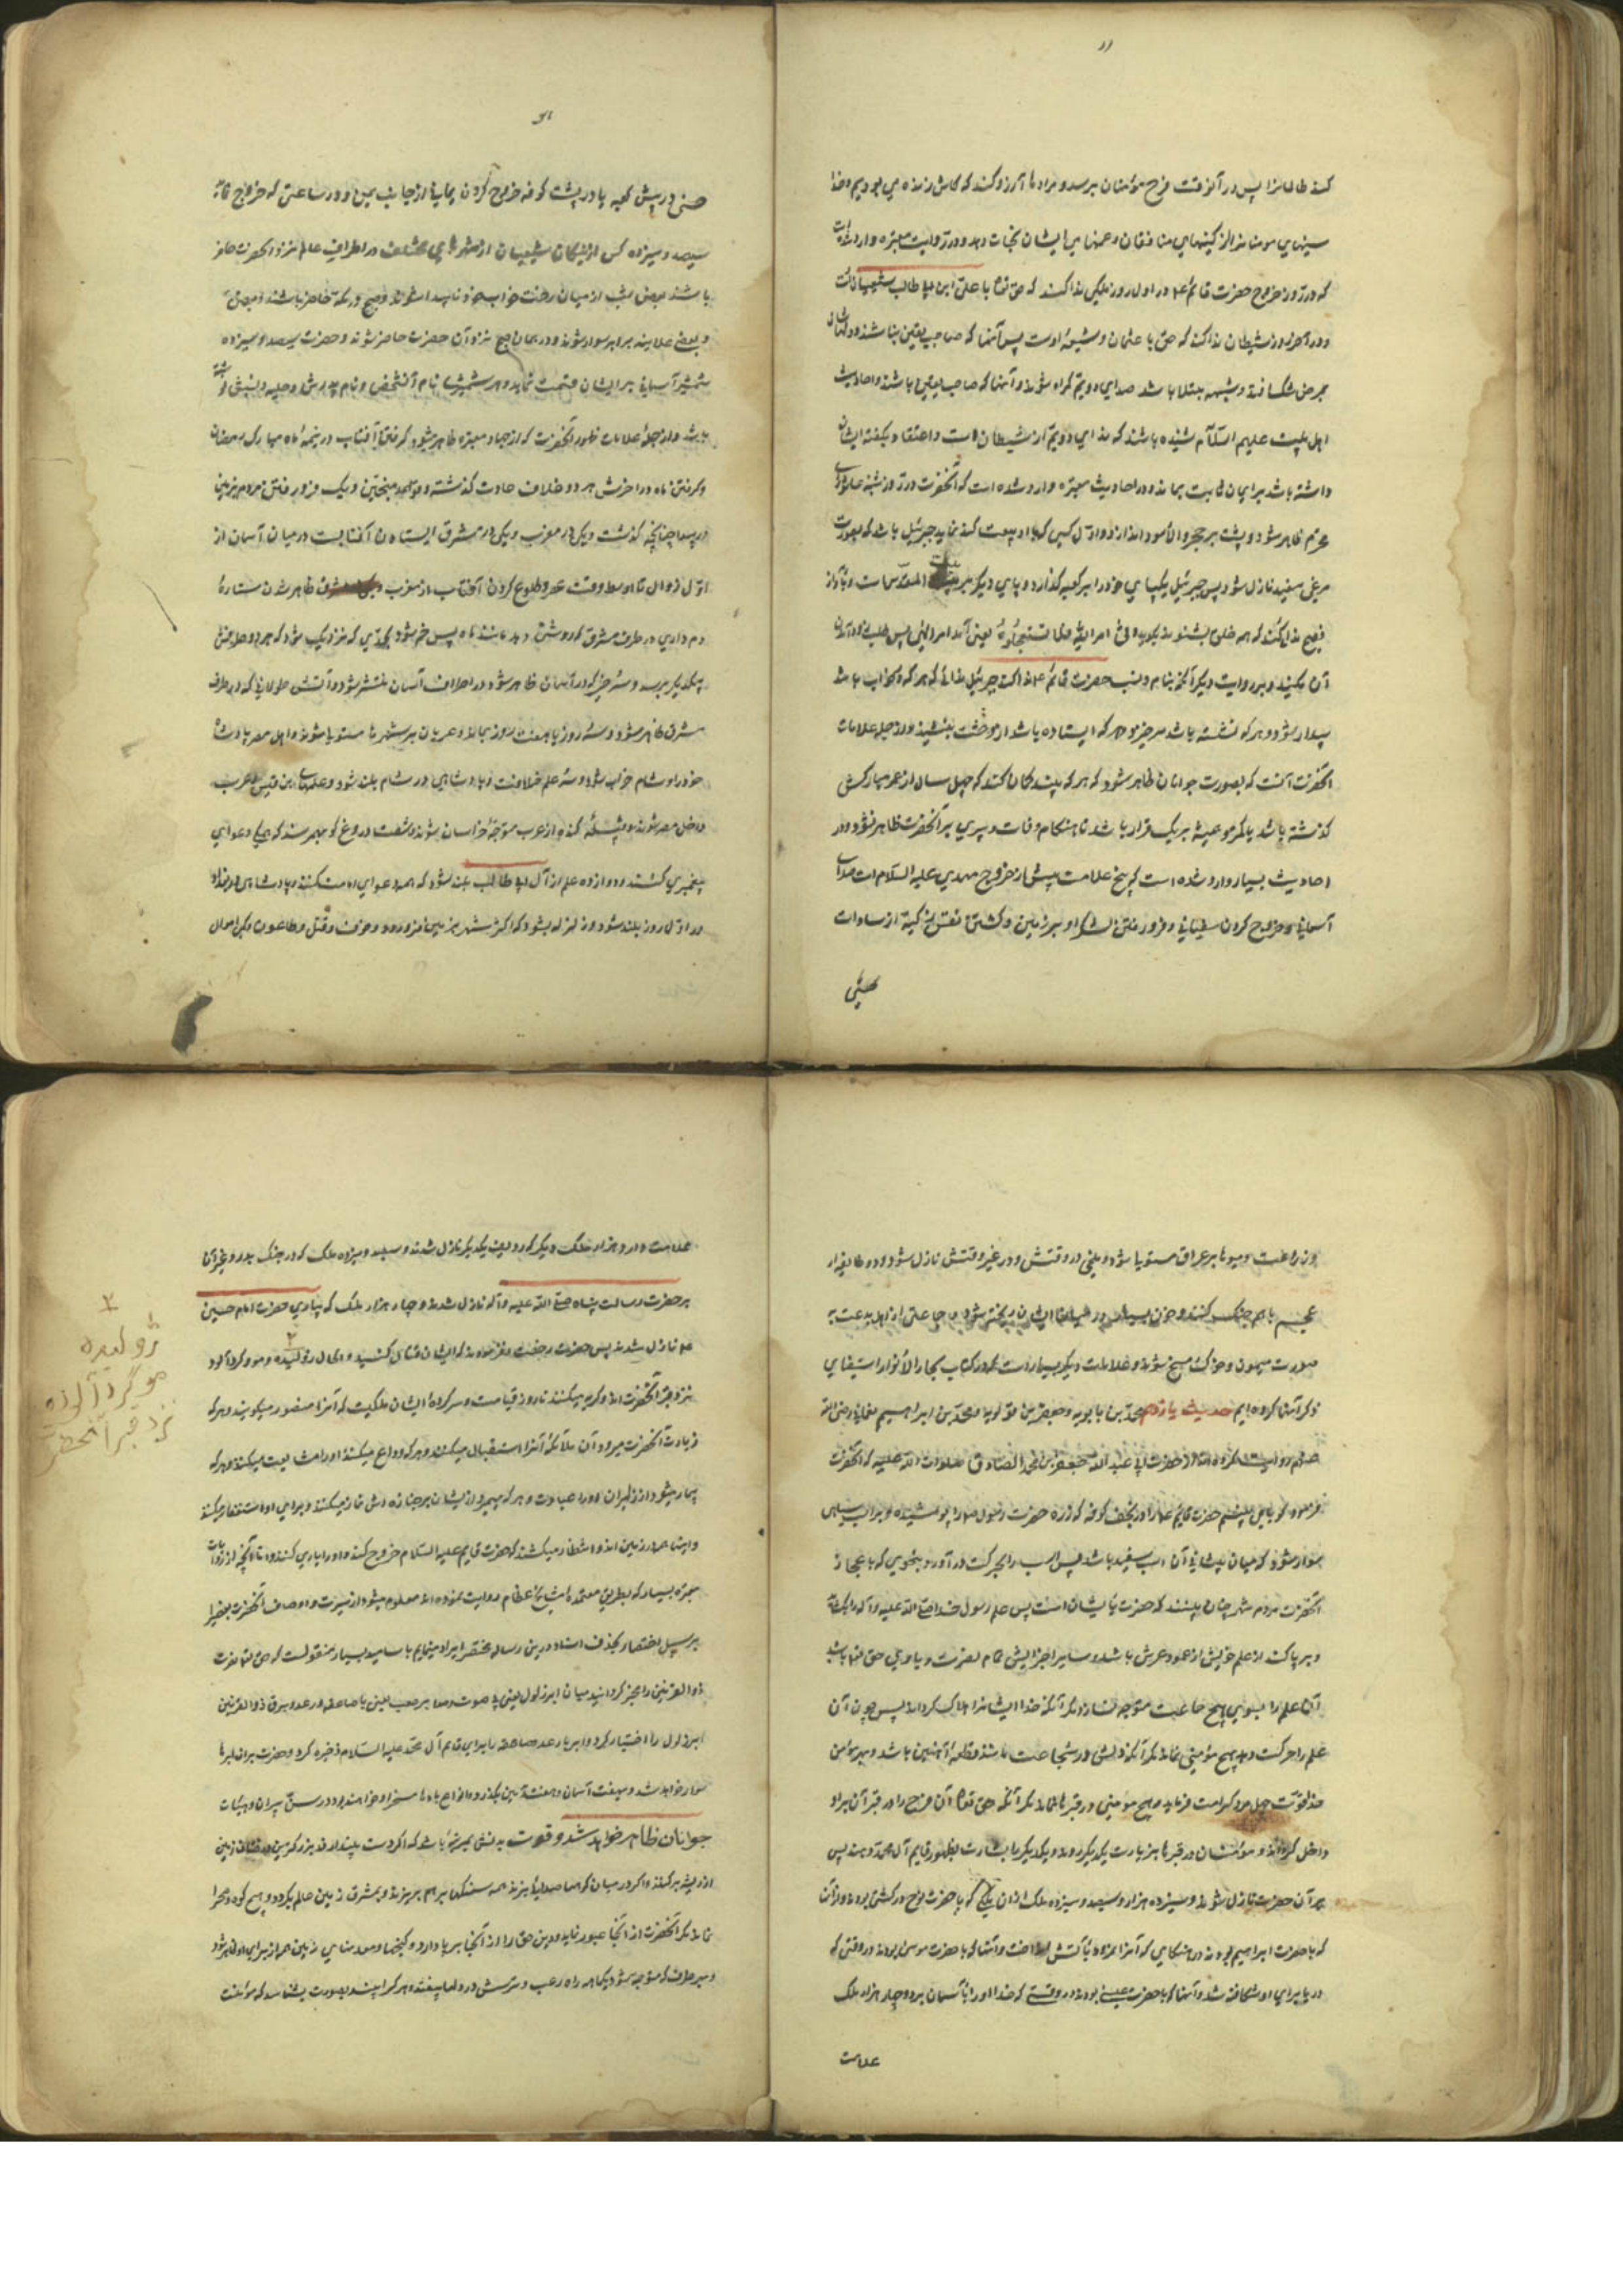 کند ظالمانرا پس در آنوقت فرح مؤمنان برسد و مردها آرزو کنند که کاش زنده می بودیم و خدا
سینهای مومنانرا از کینهای منافقان و غمهای ایشان نجات دهد و در روایت معتبره وارد شده است
که در روز خروج حضرت قائم ع در اول روز ملکی ندا کند که حق تعا با علی ابن ابیطالب و شیعیان اوست
و در آخر روز شیطان ندا کند که حق با عثمان و شیعه اوست پس آنها که صاحب یقین نباشند و دلهاشان
بمرض شک و شبهه مبتلا باشد صدای دویم گمراه شوند و آنها که صاحب یقین باشند و احادیث
اهل بیت علیهم السلام شنیده باشند که ندای دویم از شیطان است و اعتقاد بگفته ایشان
داشته باشند بر ایمان ثابت بمانند و در احادیث معتبره وارد شده است که آنحضرت در روز شنبه عاشورای
محرم ظاهر شود و پشت بر حجر الأسود اندازد و اول کسی که با او بیعت کند جبرئیل باشد که بصورت
مرغی سفید نازل شود پس جبرئیل یکپای خود را بر کعبه گذارد و پای دیگر بر بیت المقدس و بآواز
فصیح ندا کند که همه خلق بشنوند بگوید اتی امر الله فلا تستعجلوه یعنی آمد امر الهی پس طلب زود آمدن
آن مکنید و بروایت دیگر آنکه بنام و نسب حضرت قائم ع ندا کند جبرئیل ندائی که هر که در خواب باشد
بیدار شود و هر که نشسته باشد برخیزد و هر که ایستاده باشد از دهشت بنشیند و از جمله علامات
آنحضرت آنست که بصورت جوانان ظاهر شود که هر که بیند گمان کند که چهل سال از عمر مبارکش
گذشته باشد یا کمتر و همیشه بر یک قرار باشد تا هنگام وفات و پیری بر آنحضرت ظاهر نشود و در
احادیث بسیار وارد شده است که پنج علامت پیش از خروج مهدی علیه السلام است صدای
آسمانی و خروج کردن سفیانی و فرو رفتن لشکر او بزمین و کشتن نفس زکیه از سادات
حسنی
حسنی در پیش کعبه یا در پشت کوفه خروج کردن یمانی از جانب یمن و در ساعتی که خروج نماید
سیصد و سیزده کس از نیکان شیعیان از شهرهای مختلف در اطراف عالم نزد آنحضرت حاضر
باشند بعضی شب از میان رخت خواب خود ناپیدا شوند و صبح در مکه حاضر باشند و بعضی
و بعضی علانیه بر ابر سوار شوند و در همان صبح نزد آن حضرت حاضر شوند و حضرت سیصد و سیزده
شمشیر آسمانی بر ایشان قسمت نماید و هر شمشیری نام آنشخص و نام پدرش و حلیه و نسبش نوشته
باشد و از جمله علامات ظهور آنحضرت که از اخبار معتبره ظاهر میشود گرفتن آفتاب در نیمه ماه مبارک رمضان
و گرفتن ماه در آخرش هر دو خلاف عادت گذشته و قواعد منجمین و یک فرو رفتن مردم بزمین
در بیداء چنانچه گذشت و یکی در مغرب و یکی در مشرق ایستادن آفتابست در میان آسمان از
اول زوال تا اوسط وقت عصر و طلوع کردن آفتاب از مغرب ظاهر شدن ستاره
دم داری در طرف مشرق که روشنی دهد مانند ماه پس خم شود بحدی که نزدیک شود که هر دو طرفش
بیکدیگر برسد و سرخی که در آسمان ظاهر شود و در اطراف آسمان منتشر شود و آتشی طولانی که در طرف
مشرق ظاهر شود و سه روز یا هفت روز بماند و عربان بر شهرها مستولی شوند و اهل مصر پادشاه
خود را و شام خراب شود و سه علم خلافت و پادشاهی در شام بلند شود و علمهای ابن قیس و عرب
داخل مصر شوند و از عرب متوجه خراسان شوند و شصت دروغ گو بهم رسند که همگی دعوای
پیغمبری کنند و دوازده علم از آل ابیطالب بلند شود که همه دعوای امامت کنند و پادشاهی
در اول روز بلند شود و زلزله بشود که اکثر شهر بزمین فرو رود و خوف و قتل و طاعون و مرگ اموال
و زراعت و میوها بر عراق مستولی شود و ملخی در وقتش و در غیر وقتش نازل شود و دو طایفه از
عجم با هم جنگ کنند و خون بسیار در میان ایشان ریخته شود و جماعتی از اهل بدعت به
صورت میمون و خوک مسخ شوند و علامات دیگر بسیار است که در کتاب بحار الأنوار استیفای
ذکر آنها کرده ایم حدیث یازدهم محمد بن بابویه و جعفر بن قولویه و محمد بن ابراهیم نعمانی رضی الله
عنهم روایت کرده اند از حضرت ابی عبد الله جعفر بن محمد الصادق صلوات الله علیه که آنحضرت
فرمود گویا می بینم حضرت قایم ع را در نجف کوفه که زره حضرت رسول ص را پوشیده و بر اسب سیاهی
سوار شود که میان پیشانی آن اسب سفید باشد پس اسب را بحرکت در آورد بنحوی که باعجاز
آنحضرت مردم شهر چنان بینند که حضرت با ایشان است پس علم رسول خدا صلی الله علیه و آله را بگشاید
و برپا کند از علم خویش از عمود عرش باشد و سایر اجزایش تمام نصرت و یاوری حق تعا باشد
آن علم را بسوی هیچ جماعت متوجه نسازد مگر آنکه خدا ایشانرا هلاک گرداند پس چون آن
علم را حرکت دهد هیچ مؤمنی نماند مگر آنکه دلش در شجاعت مانند قطعه آهنین باشد و بهر مؤمن
خدا قوت چهل مرد کرامت فرماید و هیچ مومنی در قبرها نماند مگر آنکه حق تعا آن فرح را در قبر آن مراد
داخل گرداند و مومنان در قبرها بزیارت یکدیگر روند و یکدیگر را بشارت بظهور قایم آل محمد دهند پس
بر آن حضرت نازل شوند و سیزده هزار و سیصد و سیزده ملک از آن ملکی که با حضرت نوح در کشتی بودند و از آن
که با حضرت ابراهیم بودند در هنگامی که آنرا نمرود بآتش انداخت و آنها که با حضرت موسی بودند در وقتی که
دریا برای او شکافته شد و آنها که با حضرت عیسی بودند در وقتی که خدا او را بآسمان برد و چهار هزار ملک
علامت
علامت دار و هزار ملک دیگر که ردیف یکدیگر نازل شدند و سیصد و سیزده ملک که در جنگ بدر و غیر آن
بر حضرت رسالت پناه صلی الله علیه و آله نازل شدند و چهار هزار ملک که بیاری حضرت امام حسین
ع نازل شدند پس حضرت رخصت نفرمودند که ایشان قتال کنند و الحال ژولیده و مو گردآلود
نزد قبر آنحضرت اند و گریه میکنند تا روز قیامت و سرکرده ایشان ملکیست که آنرا منصور میگویند و هر که
زیارت آنحضرت میرود آن ملائکه آنرا استقبال میکنند و هر که وداع میکند او را مشایعت میکنند و هر که
بیمار میشود از زایران او را عیادت و هر که بمیرد از ایشان بر جنازه اش نماز میکنند و برای او استغفار میکنند
و اینها همه در زمین اند و انتظار میکشند که حضرت قایم علیه السلام خروج کند و او را یاری کنند و اما آنچه از روایات
معتبره بسیار که بطریق معتمده مشایخ عظام روایت نموده اند معلوم میشود از سیرت و اوصاف آنحضرت
بر سبیل اختصار بحذف اسناد درین رساله مختصر ایراد مینمایم باسانید بسیار منقولست که حق تعا حضرت
ذو القرنین را مخیر گردانید میان ابر ذلول یعنی بی صوت و صعب یعنی با صاعقه و رعد و برق ذو القرنین
ابر ذلول را اختیار کرد و ابر با رعد صاعقه را برای قایم آل محمد علیه السلام ذخیره کرد و حضرت بر آن ابرها
سوار خواهد شد و بهفت آسمان و هفت زمین بگذرد و انواع بادها مسخر او خواهند بود در سن پیران و هیئات
جوانان ظاهر خواهد شد و قوت بدنش بمرتبه باشد که اگر دست بیندازد بزرگترین درختان زمین
از ریشه برکند و اگر در میان کوهها صدا زند همه سنگها بر هم بریزند و بمشرق زمین عالم بگردد و هیچ کوه و صحرا
نماند مگر آنحضرت از آنجا عبور نماید و دین حق را در آنجا برپا دارد و گنجها و معدنهای زمین همه از برای او ظاهر شود
و بهر طرف که متوجه شود یکماهه راه رعب و ترسش در دلها بیفتد و هر کرا بیند بصورت بشناسد که مؤمنست
۲
ژولیده
مو گردآلوده
نزد قبر آنحضرت